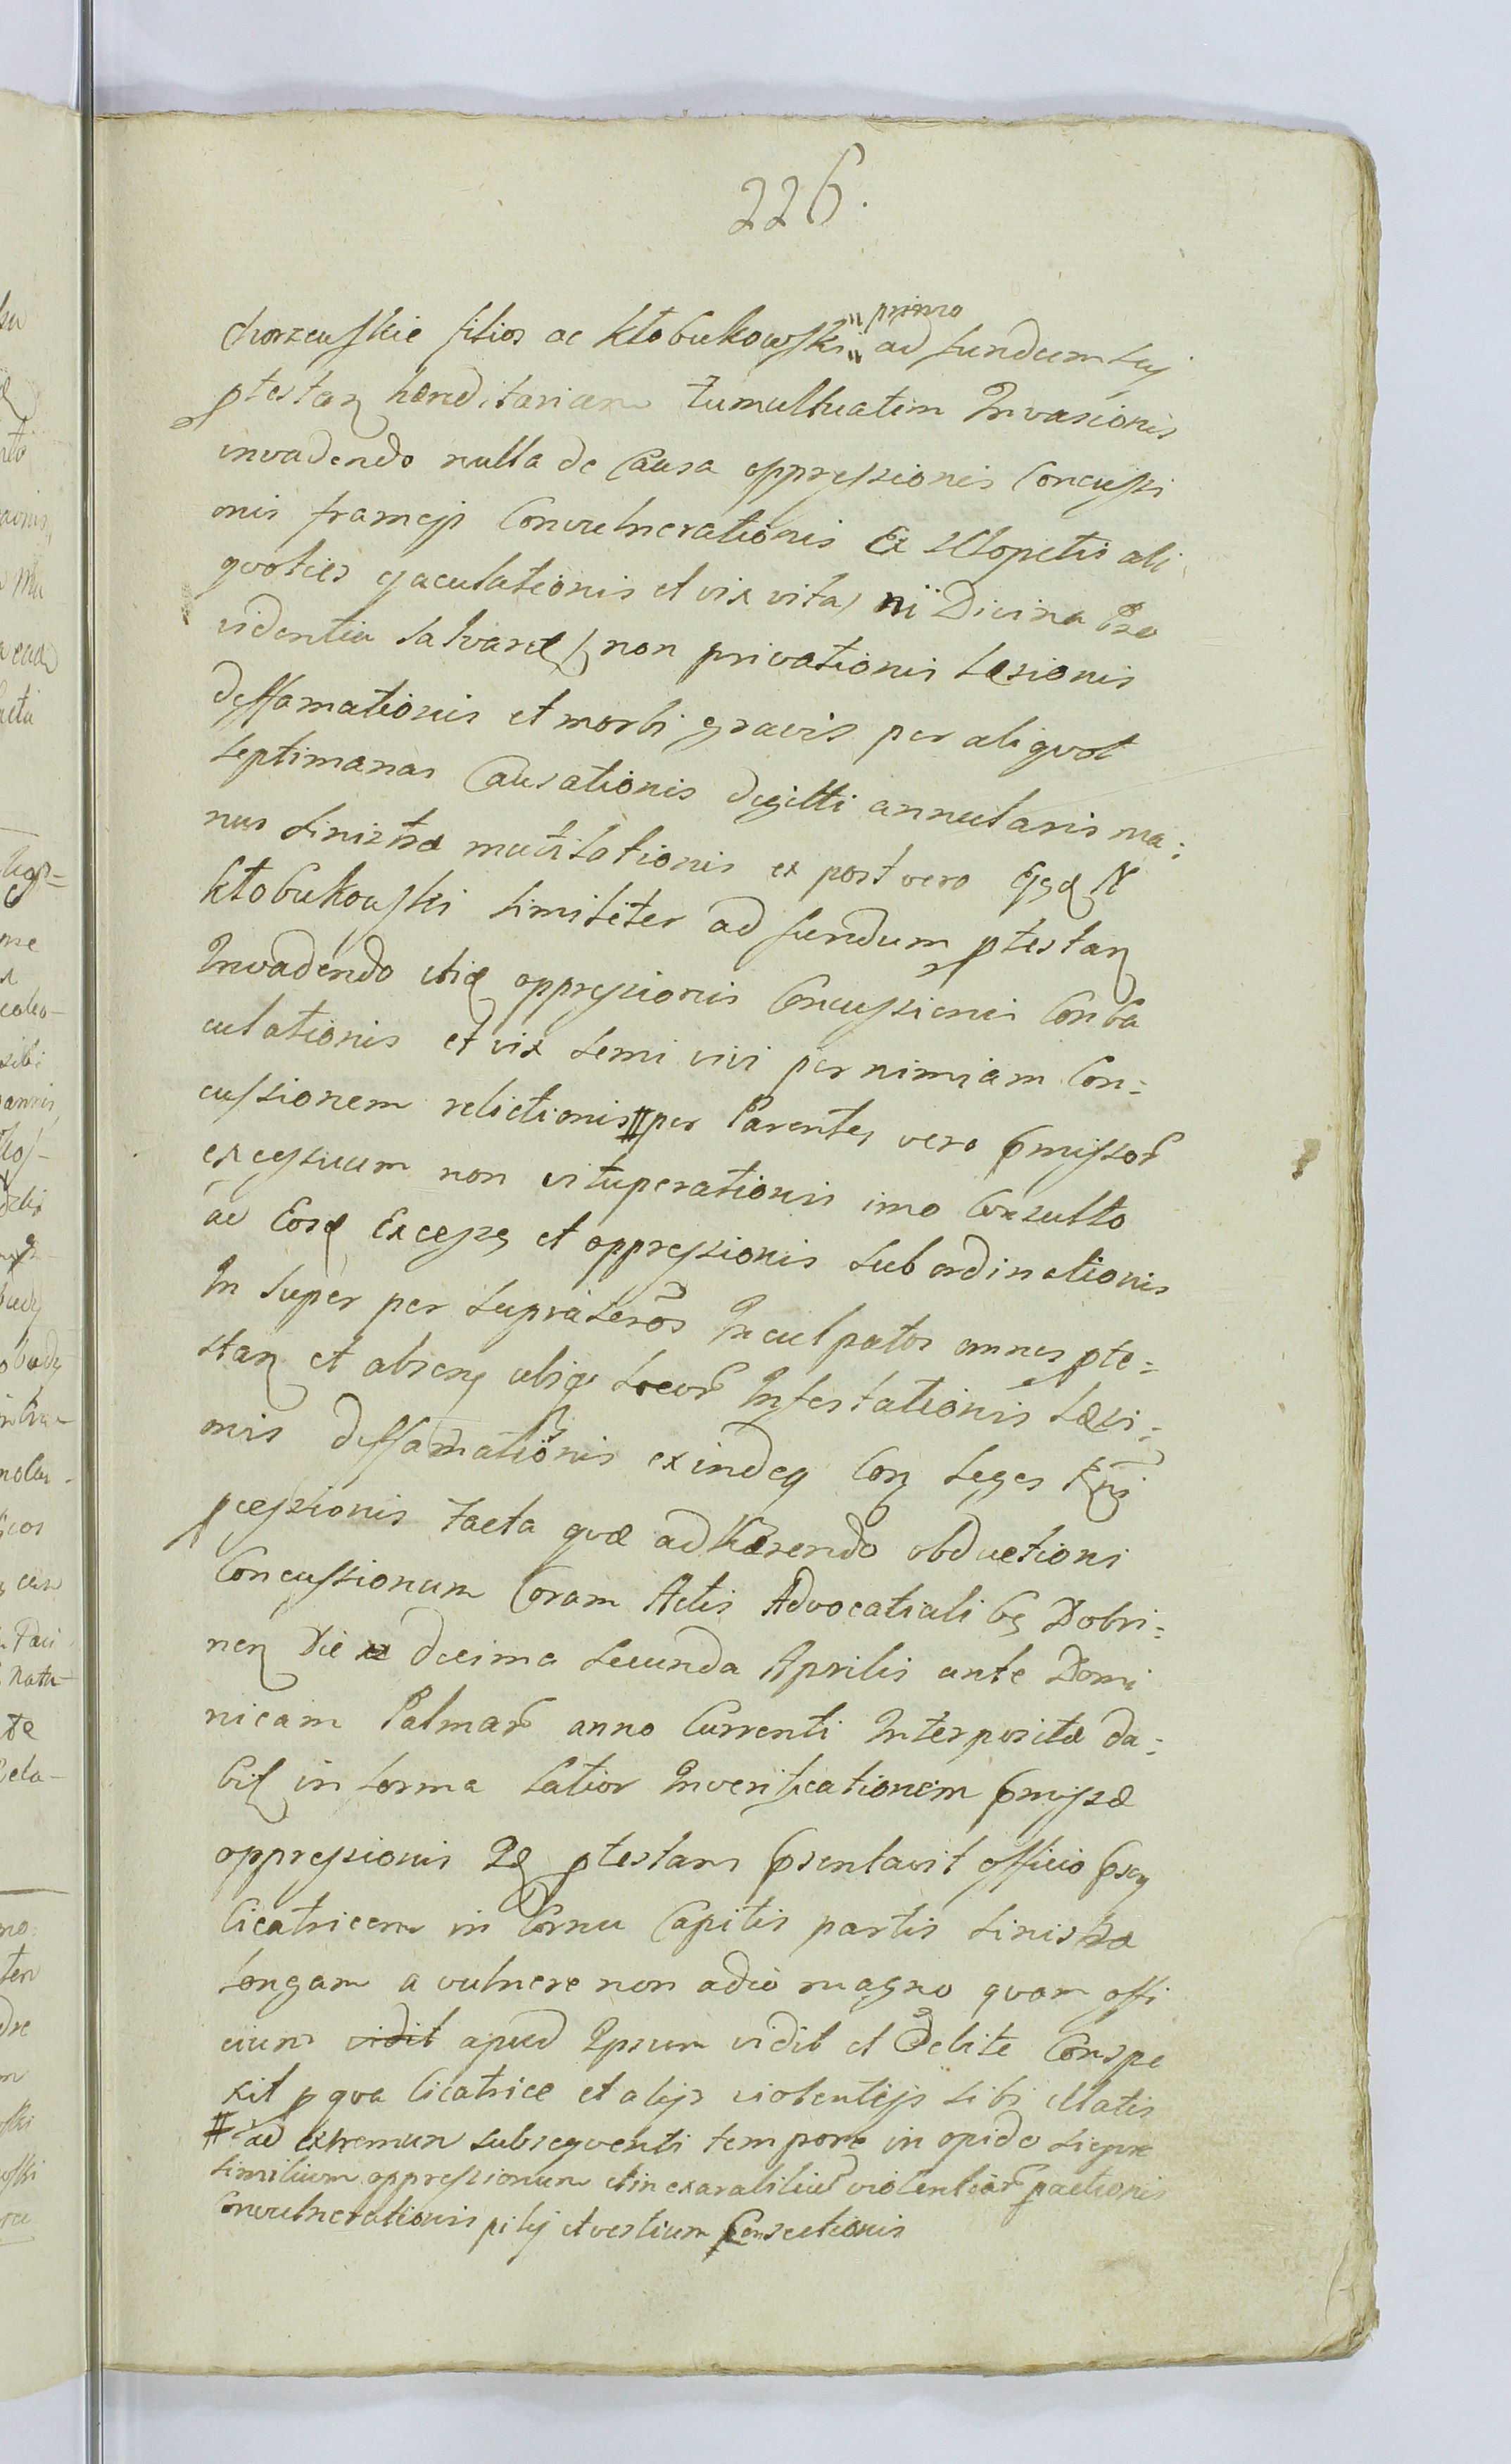 226.
chorzewskie filios ac Kłobukowski " primo " ad fundum sui
ptestan hæreditariam tumultuatim Invasionis
invadendo nulla de Causa oppressionis Concussi
onis frameis Convulnerationis Ex sclopetis ali
quoties ejaculationis et vix vita, ni Divina Pro
videntia salvaret non privationis Læsionis
deffamationis et morbi gravis per aliquot
septimanas Causationis digitti annularis ma:
nus sinistræ mutilationis ex post vero N
Kłobukowski similiter ad fundum ptestan
Invadendo itid oppressionis Concussionis Conba
culationis et vix semi vivi per nimiam Con:
cussionem relictionis # per Parentes vero pmissor
excessuum non vituperationis imo Consulto
ad Eosd Excess et oppressionis subordinationis
In super per supra Inculpatos omnes pte:
stan et absen ubiq Locor Infestationis Læsi:
onis deffamationis exindeq Con Leges Rni
pcessionis facta quæ adhærendo obductioni
Concussionum Coram Actis Advocatialibs Dobri:
nen Die decima secunda Aprilis ante Domi
nicam Palmar anno Currenti Interpositæ da:
bit in forma latior Inverificationem pmissæ
oppressionis Id ptestans psentavit officio psen
Cicatricem in Cornu Capitis partis sinistræ
Longam a vulnere non adeo magno quam offi
cium vidit apud Ipsum vidit et debite Conspe
xit p qua Cicatrice et alijs violentijs sibi illatis
# ad extremum subsequenti tempore in opido
similium oppressionum et in exarabiliu violentiar pactionis
Convulnerationis pilij et vestium Consectionis